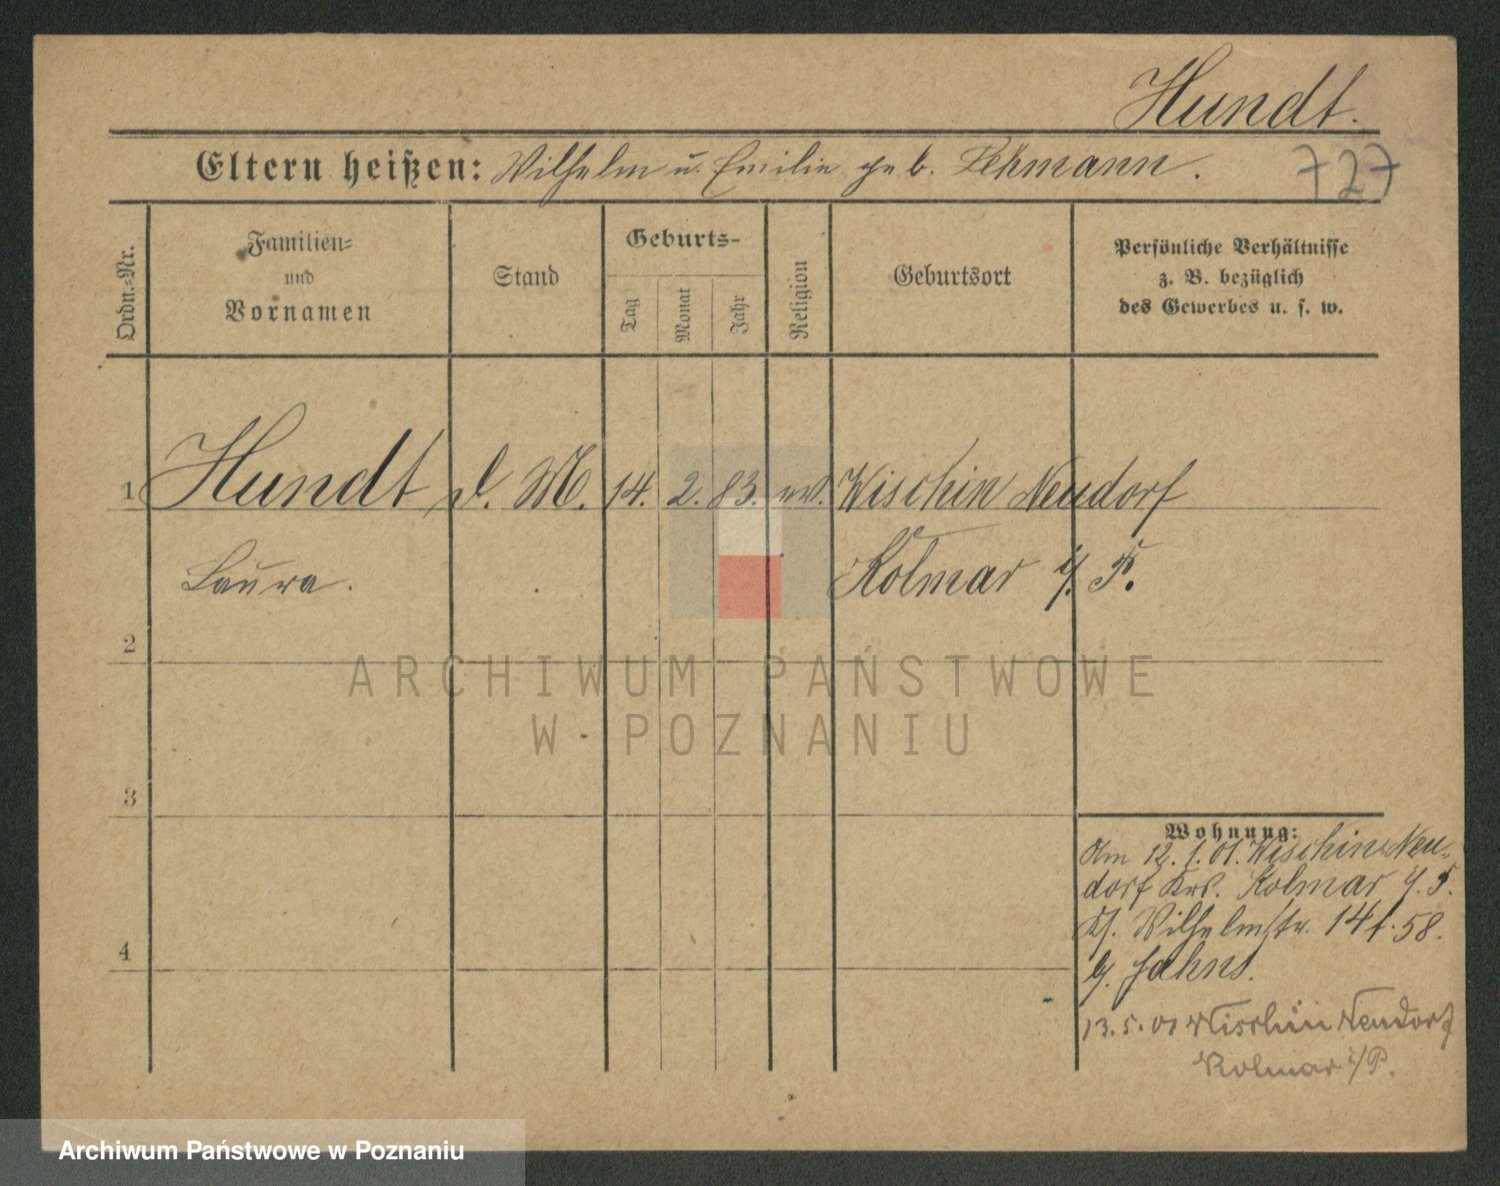 Hundt.
Eltern heißen: Wilhelm u. Emilie geb. Lehmann.
727
Ordn.-Nr.
Familien-
und
Vornamen
Stand
Geburts-
Tag
Monat
Jahr
Religion
Geburtsort
Persönliche Verhältnisse
z. B. bezüglich
des Gewerbes u. s. w.
1 Hundt d. M. 14. 2. 83. ev. Wischin Neudorf
Laura. Kolmar i/. P.
2
ARCHIWUM PAŃSTWOWE
W POZNANIU
3
Wohnung:
Am 12. 1. 01. Wischin Neu-
dorf Krs. Kolmar i/. P.
Wilhelmstr. 14 58.
b/. Jahns.
4
13. 5. 01 Wischin Neudorf
Kolmar i/P.
Archiwum Państwowe w Poznaniu